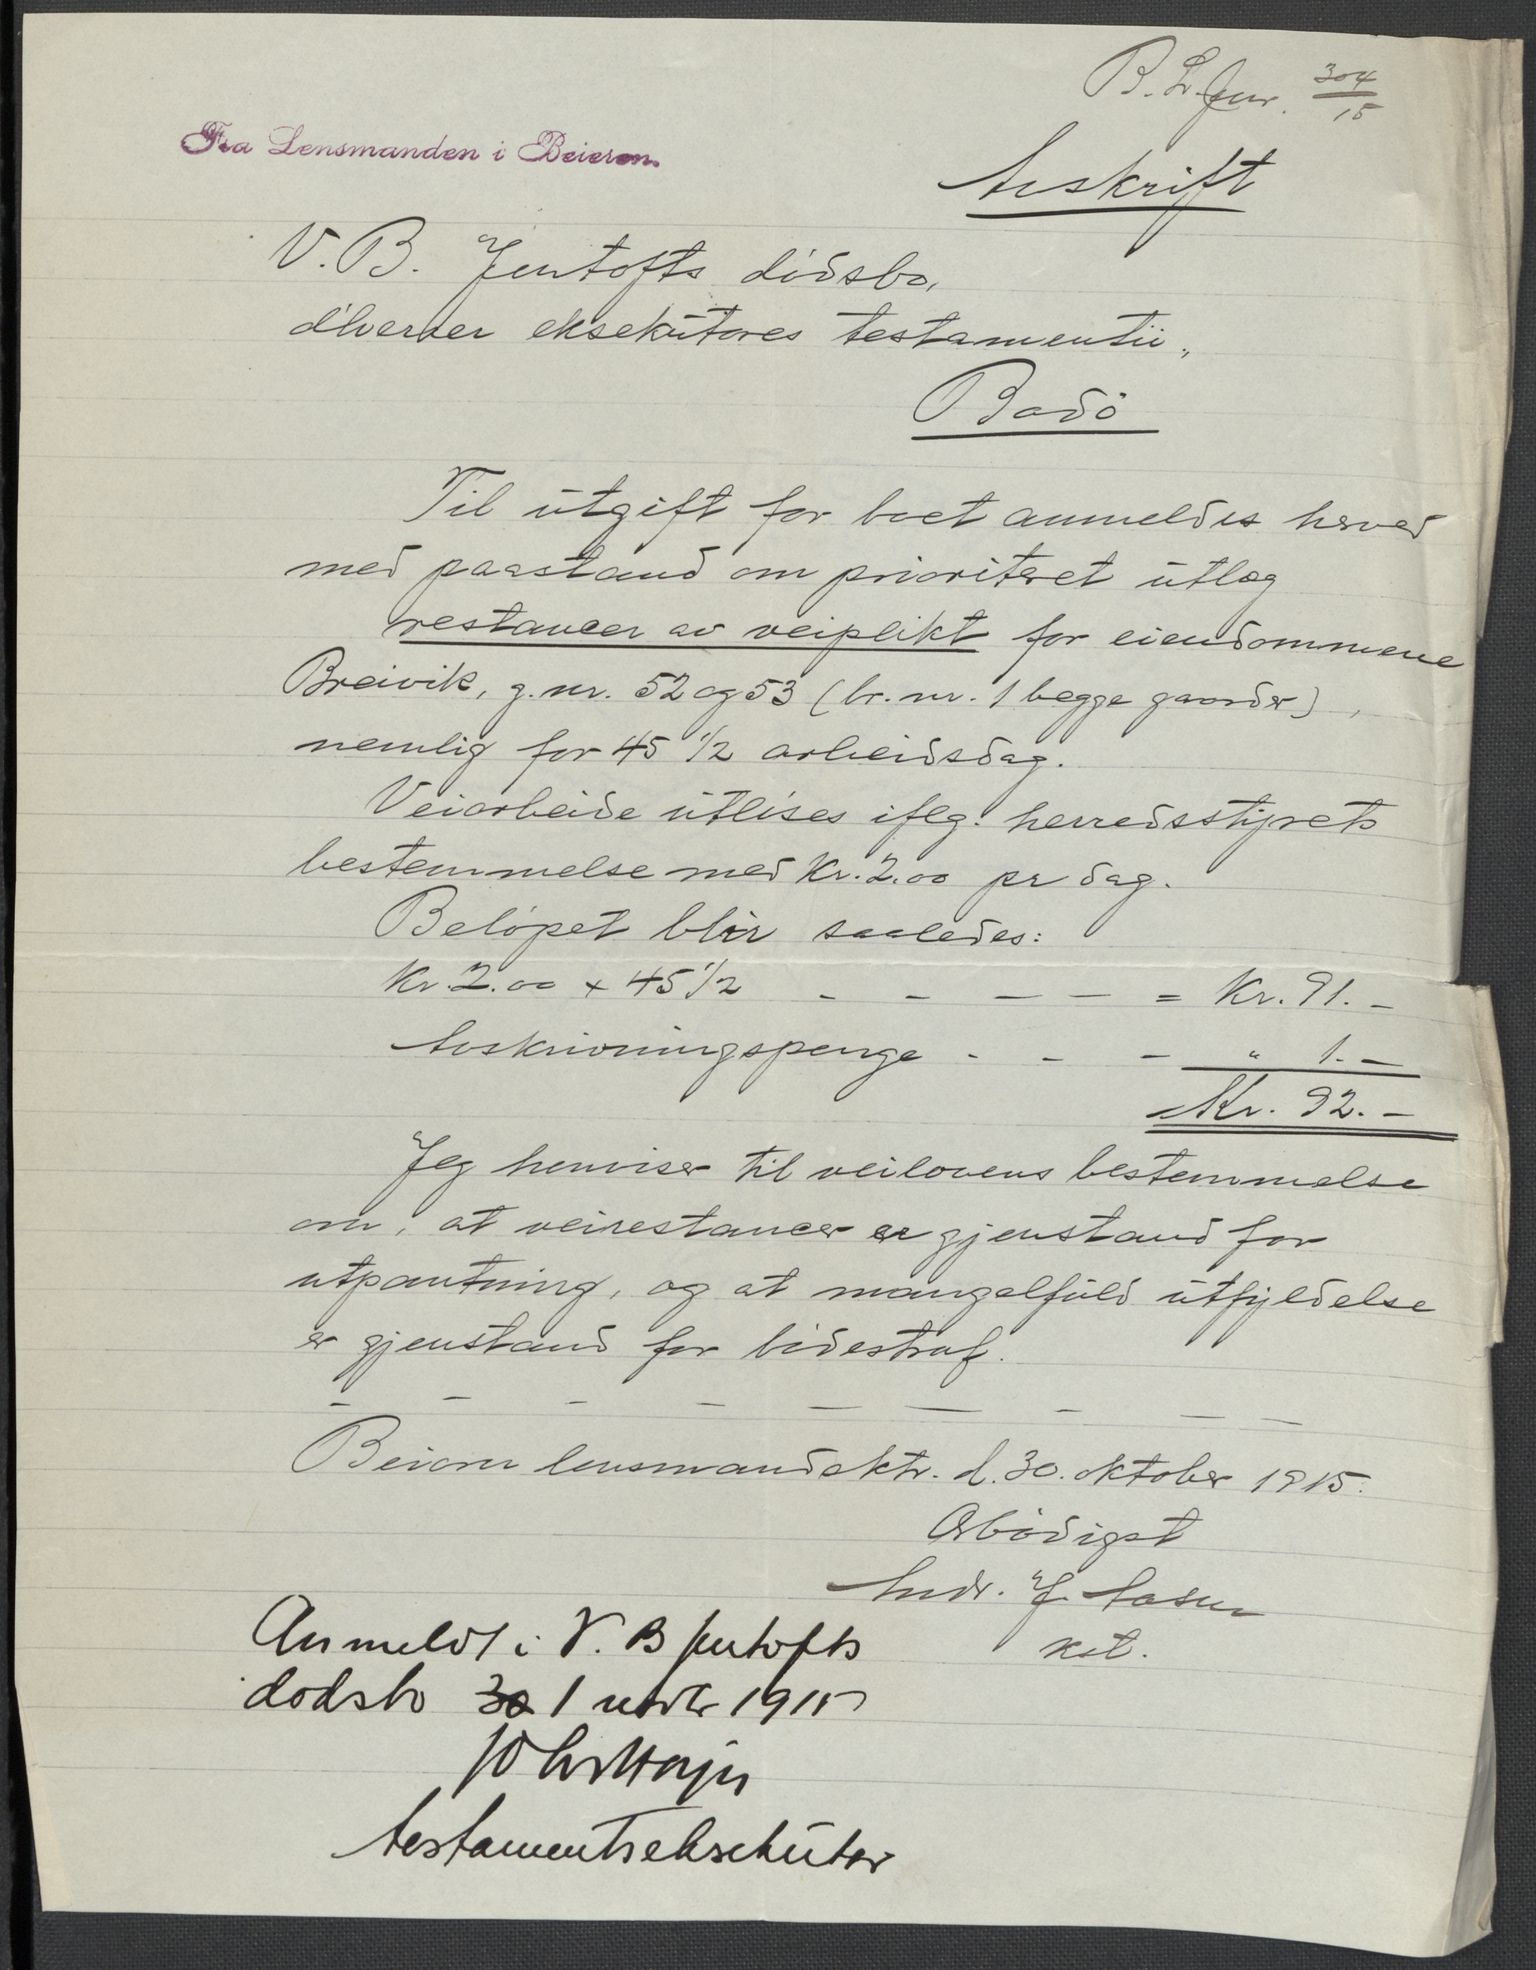 B. L. Jur. 304/15
Fra Lensmanden i Beieren.
Avskrift
V. B. Jentofts dödsbo,
d'herrer eksekutores testamentii,
Bodö
Til utgift for boet anmeldes herved
med paastand om prioriteret utlæg
restancer av veiplikt for eiendommene
Breivik, g. nr. 52 og 53 (br. nr. 1 begge gaarder),
nemlig for 45 1/2 arbeidsdag.
Veiarbeide utlöses iflg. herredsstyrets
bestemmelse med Kr. 2.00 pr dag.
Belöpet blir saaledes:
Kr. 2.00 x 45 1/2 - - - - = Kr. 91. -
Avskrivningspenge - - - " 1. -
Kr. 92. -
Jeg henviser til veilovens bestemmelse
om, at veirestancer er gjenstand for
utpantning, og at mangelfuld utfyldelse
er gjenstand for bödestraf.
- - - - - - - - -
Beiarn lensmandsktr. d. 30. oktober 1915.
Ærbödigst
Andr. J. Aasen
kst.
Anmeldt i V. B Jentofts
dødsbo 30 1 novbr 1915
testamentseksekutor